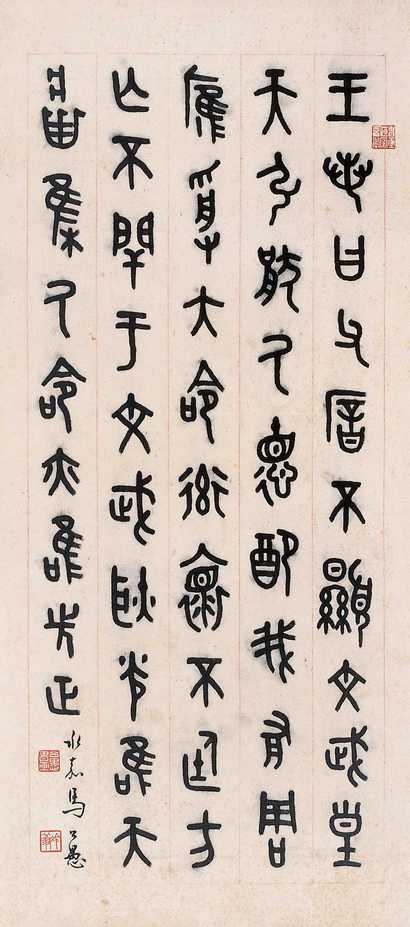 王若曰父厝不顯文武皇
天弘猒氒德配我有周
膺受大命率懷不廷方
亡不閈于文武耿光唯天
將集氒命亦唯先正
永嘉馬公愚